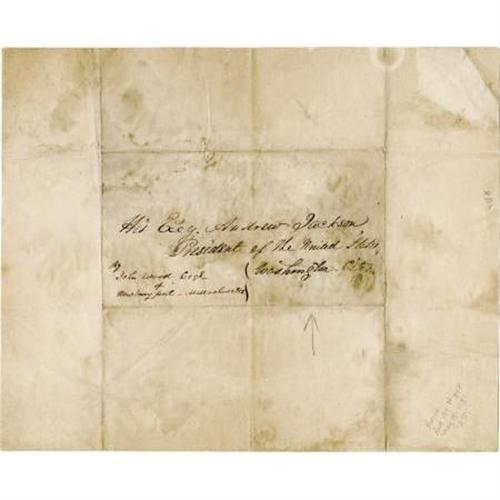 His Exy. Andrew Jackson
President of the United States,
Washington City,
by
John Wood Esqr
of
Newburyport - Massachusetts